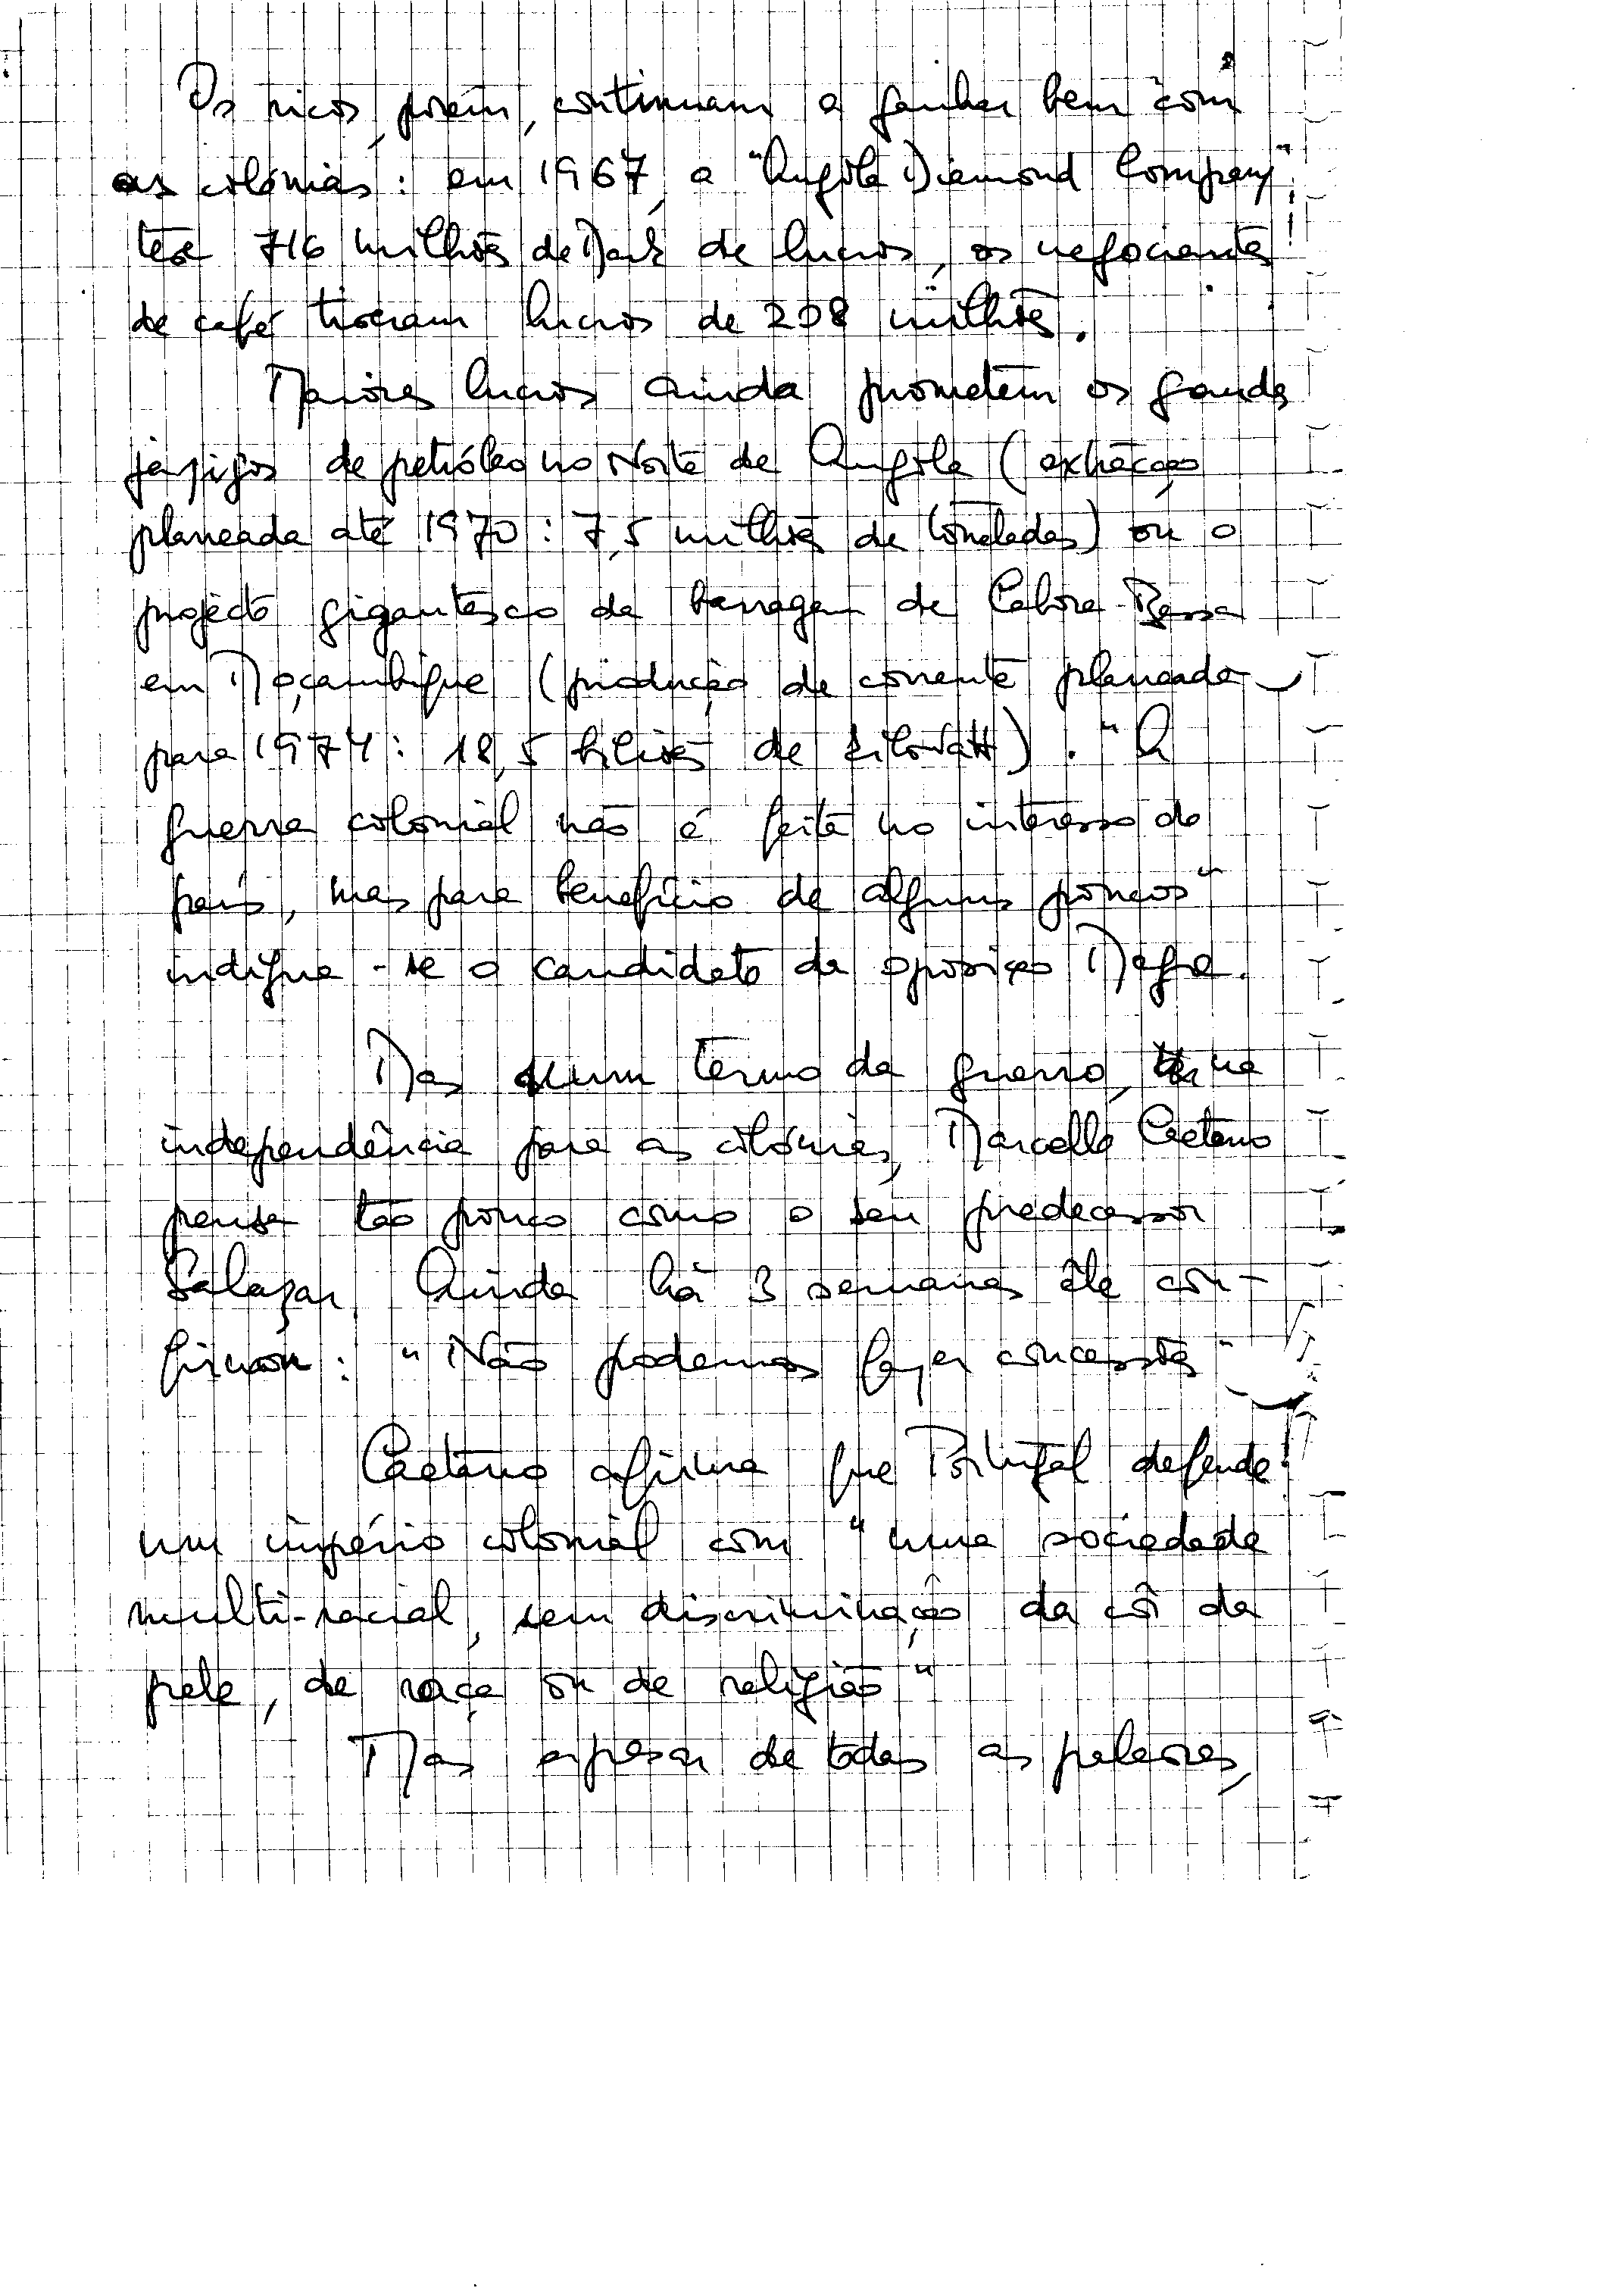 Os ricos, porém, continuam a ganhar bem com
as colónias: em 1967, a "Angola Diamond Company"
teve 716 milhões de Mark de lucros, os negociantes
de café tiveram lucros de 208 milhões.
Maiores lucros ainda prometem os grandes
jazigos de petróleo no Norte de Angola (extracção
planeada até 1970: 7,5 milhões de toneladas) ou o
projecto gigantesco da barragem de Cabora-Bassa
em Moçambique (produção de corrente planeada
para 1974: 18,5 biliões de kilowatt). "A
guerra colonial não é feita no interesse do
país, mas para benefício de alguns poucos"
indigna-se o candidato da oposição Mafra.
Mas num termo da guerra, na
independência para as colónias, Marcello Caetano
pensa tão pouco como o seu predecessor
Salazar. Ainda há 3 semanas êle con-
firmou: "Não podemos fazer concessões"
Caetano afirma que Portugal defende
um império colonial com "uma sociedade
multi-racial, sem discriminação da côr da
pele, de raça ou de religião"
Mas apesar de todas as palavras,